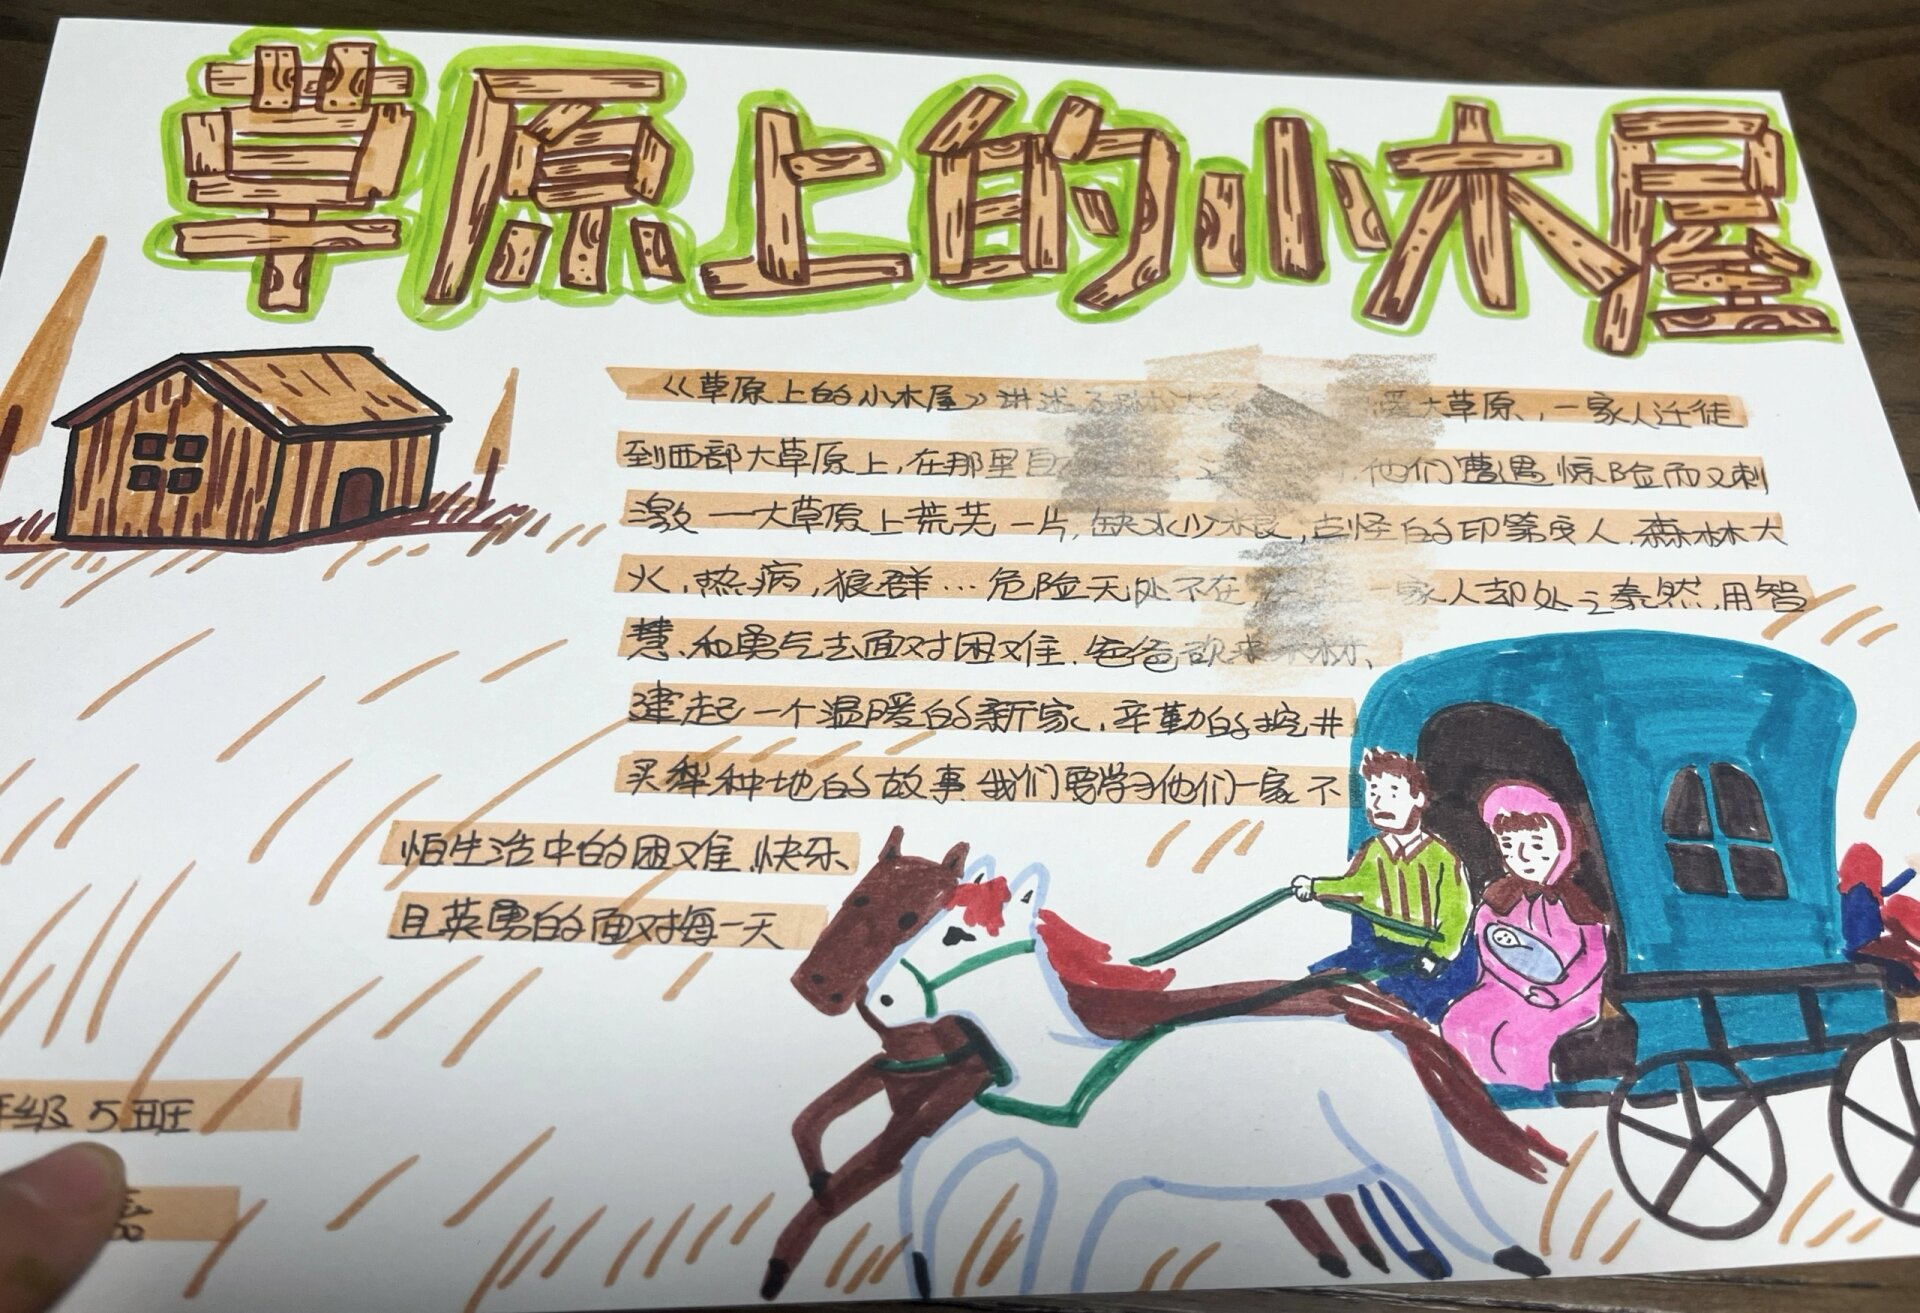 草原上的小木屋
《草原上的小木屋》讲述了 爱大草原,一家人迁徒
到西部大草原上,在那里自 他们遭遇惊险而又刺
激一大草原上荒芜一片,缺水少粮,古怪的印第安人,森林大
火,热病,狼群…危险无处不在 一家人却处之泰然,用智
慧、和勇气去面对困难.爸爸砍来木材、
建起一个温暖的新家,辛勤的挖井
买犁种地的故事.我们要学习他们一家不
怕生活中的困难.快乐、
且英勇的面对每一天
年级5班